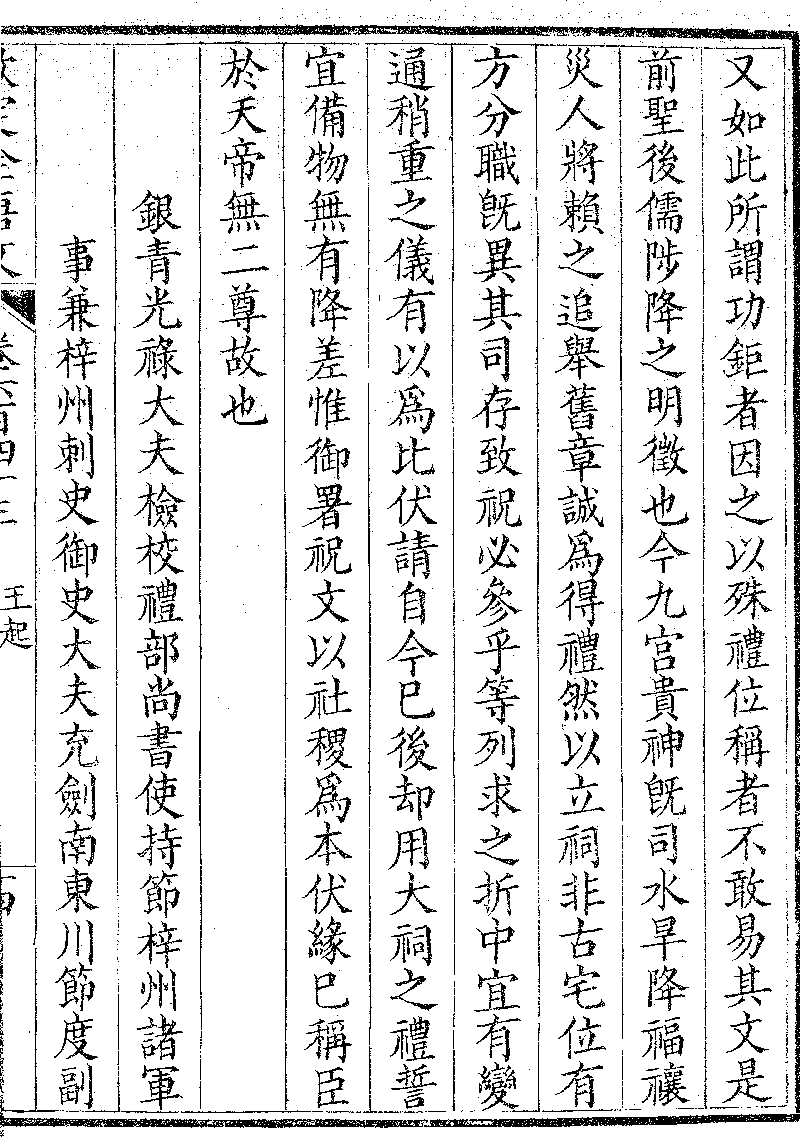 又如此所謂功鉅者因之以殊禮位稱者不敢易其文是
前聖後儒陟降之明徵也今九宮貴神旣司水旱降福禳
災人將賴之追舉舊章誠爲得禮然以立祠非古宅位有
方分職旣異其司存致祝必參乎等列求之折中宜有變
通稍重之儀有以爲比伏請自今已後却用大祠之禮誓
宜備物無有降差惟御署祝文以社稷爲本伏緣已稱臣
於天帝無二尊故也
銀青光祿大夫檢校禮部尚書使持節梓州諸軍
事兼梓州刺史御史大夫充劍南東川節度副
欽定全唐文
卷六百四十三
王起